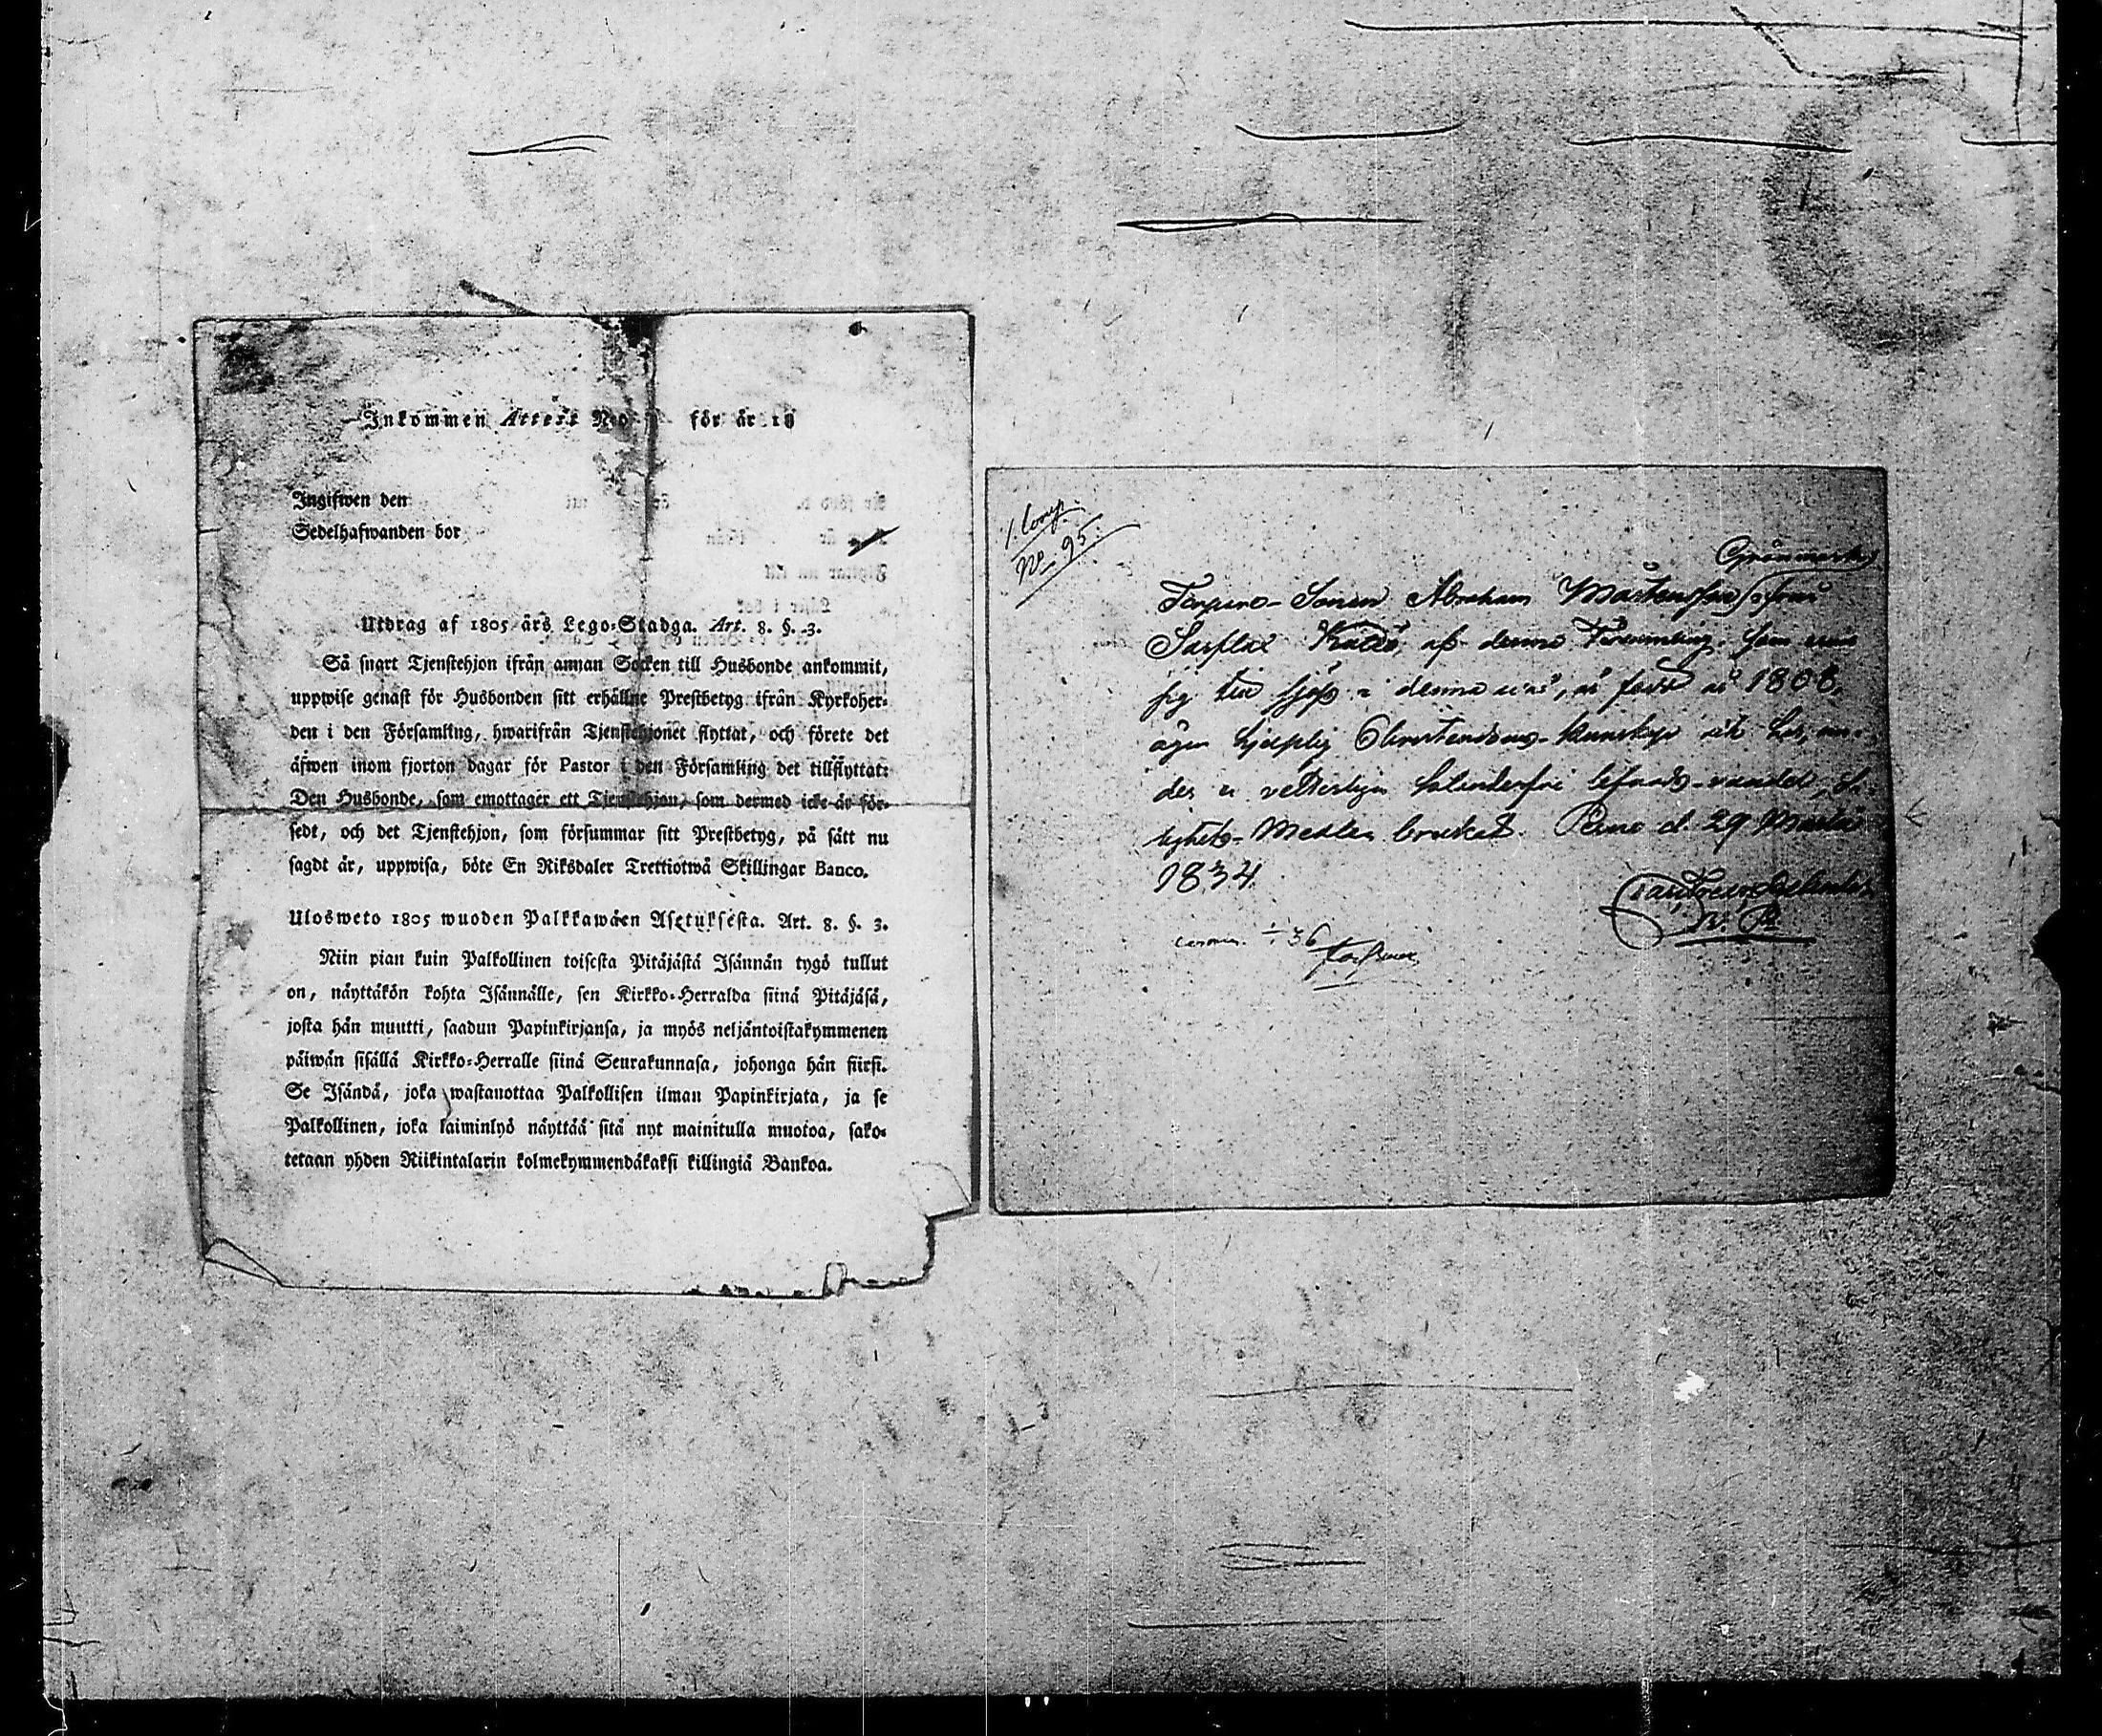 Inkommen Attest N:o för år 18
Ingifwen den
Sedelhafwanden bor
Utdrag af 1805 års Lego-Stadga. Art. 8. §. 3.
Så snart Tjenstehjon ifrån annan Socken till Husbonde ankommit,
uppwise genast för Husbonden sitt erhållne Prestbetyg ifrån Kyrkoher-
den i den Församling, hwarifrån Tjenstehjonet flyttat, och förete det
äfwen inom fjorton dagar för Pastor i den Församling det tillflyttat:
Den Husbonde, som emottager ett Tjenstehjon, som dermed icke är för-
sedt, och det Tjenstehjon, som försummar sitt Prestbetyg, på sätt nu
sagdt är, uppwisa, böte En Riksdaler Trettiotwå Skillingar Banco.
Ulosweto 1805 wuoden Palkkawäen Asetuksesta. Art. 8. §. 3.
Niin pian kuin Palkollinen toisesta Pitäjästä Isännän tygö tullut
on, näyttäkön kohta Isännälle, sen Kirkko-Herralda siinä Pitäjäsä,
josta hän muutti, saadun Papinkirjansa, ja myös neljäntoistakymmenen
päiwän sisällä Kirkko-Herralle siinä Seurakunnasa, johonga hän siirsi.
Se Isändä, joka wastanottaa Palkollisen ilman Papinkirjata, ja se
Palkollinen, joka laiminlyö näyttää sitä nyt mainitulla muotoa, sako-
tetaan yhden Riikintalarin kolmekymmendäkaksi killingiä Bankoa.
1. Comp.
No 95.
Sonen Abraham Mårtensson ifrån
Sarflax af denna Församling, som
sig till sjöss i denna är född år 1808,
äger hjelplig Christendoms-kunskap
des
lighets-Medlen brukat. Perno d. 29 Martii
1834.
÷ 36